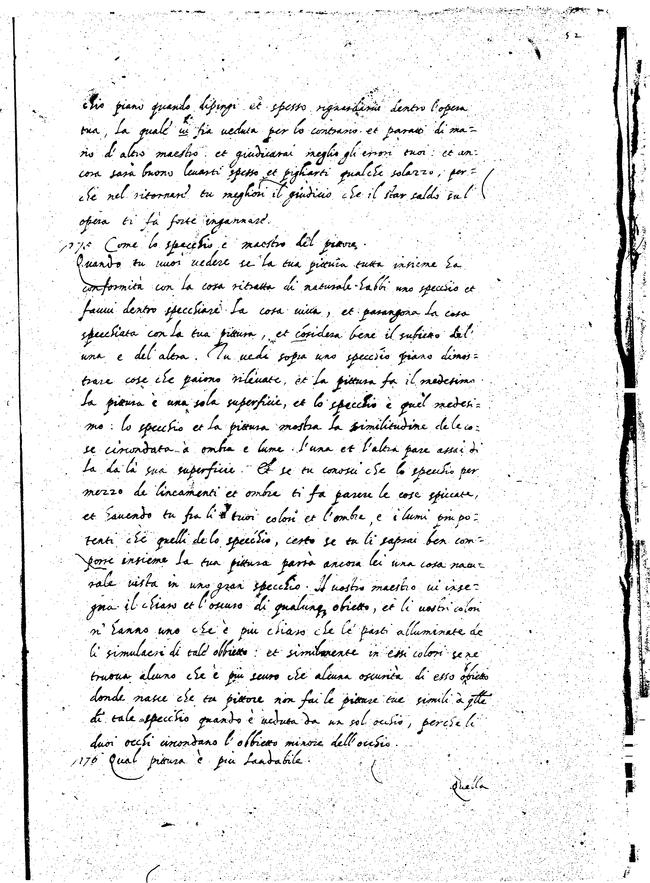 52
chio piano quando dipingi et spesso riguardarui dentro l'opera
tua, la quale iui fia veduta per lo contrario et parrati di ma=
no d'altro maestro. et giudicarai meglio gli errori tuoi: et an=
cora sarà buono leuarti spesso et pigliarti qualche solazzo, per=
chè nel ritornare tu megliori il giudicio che il star saldo sul'
opera ti fà forte ingannare.
175 Come lo specchio è maestro del pittore.
Quando tu vuoi vedere se la tua pittura tutta insieme ha
conformità con la cosa ritratta di naturale habbi uno specchio et
fauui dentro specchiare la cosa uiua, et paragona la cosa
specchiata con la tua pittura, et cōsidera bene il subietto del'
una e del'altra. Tu vedi sopra uno specchio piano dimos=
trare cose che paiono rileuate, et la pittura fa il medesimo
la pittura è una sola superficie, et lo specchio è quel medesi=
mo: lo specchio et la pittura mostra la similitudine dele co=
se circondata à ombra e lume. l'una et l'altra pare assai di
la da là sua superficie. Et se tu conosci che lo specchio per
mezzo de lineamenti et ombre ti fa parere le cose spiccate,
et hauendo tu fra li tuoi colori et l'ombre, e i lumi piu po=
tenti che quelli delo specchio, certo se tu li saprai ben com=
porre insieme la tua pittura parrà ancora lei una cosa natu=
rale vista in uno gran specchio. Il vostro maestro ui inse=
gna il chiaro et l'oscuro di qualunq obietto, et li uostri colori
n'hanno uno che è piu chiaro che le parti alluminate de
li simulacri di tale obbietto: et similmente in essi colori se ne
truoua alcuno che è piu scuro che alcuna oscurità di esso obietto
donde nasce che tu pittore non fai le pitture tue simili à q̄lle
di tale specchio quando è ueduta da un sol occhio, perche li
duoi occhi circondano l'obbietto minore dell'occhio.
176 Qual pittura è piu laudabile.
Quella